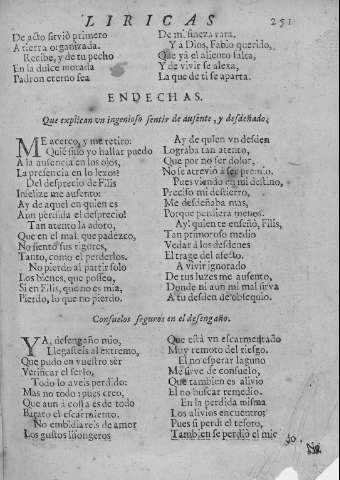 LIRICAS 251
De acto sirviò primero
A tierra organizada.
Recibe, y de tu pecho
En la dulce morada
Padron eterno sea
De mi fineza rara.
Y à Dios, Fabio querido,
Que yà el aliento falta,
Y de vivir se alexa,
La que de ti se aparta.
ENDECHAS.
Que explican vn ingenioso sentir de ausente, y desdeñado.
ME acerco, y me retiro:
Quiè sino yo hallar puedo
A la ausencia en los ojos,
La presencia en lo lexos?
Del desprecio de Filis
Infelize me ausento:
Ay de aquel en quien es
Aun pèrdida el desprecio!
Tan atento la adoro,
Que en el mal que padezco,
No siento sus rigores,
Tanto, como el perderlos.
No pierdo al partir solo
Los bienes, que posseo,
Si en Filis, que no es mia,
Pierdo, lo que no pierdo.
Ay de quien vn desden
Lograba tan atento,
Que por no ser dolor,
No se atreviò à ser premio.
Pues viendo en mi destino,
Preciso mi destierro,
Me desdeñaba mas,
Porque perdiera menos.
Ay! quien te enseñò, Filis,
Tan primoroso medio
Vedar à los desdenes
El trage del afecto.
A vivir ignorado
De tus luzes me ausento,
Donde ni aun mi mal sirva
A tu desden de obsequio.
Consuelos seguros en el desengaño.
YA, desengaño mio,
Llegasteis al extremo,
Que pudo en vuestro ser
Verificar el serlo,
Todo lo aveis perdido:
Mas no todo: pues creo,
Que aun à costa es de todo
Barato el escarmiento.
No embidiareis de amor
Los gustos lisongeros
Que està vn escarmentado
Muy remoto del riesgo.
El no esperar alguno
Me sirve de consuelo,
Que tambien es alivio
El no buscar remedio.
En la perdida misma
Los alivios encuentro:
Pues si perdi el tesoro,
Tambien se perdiò el miedo.
No